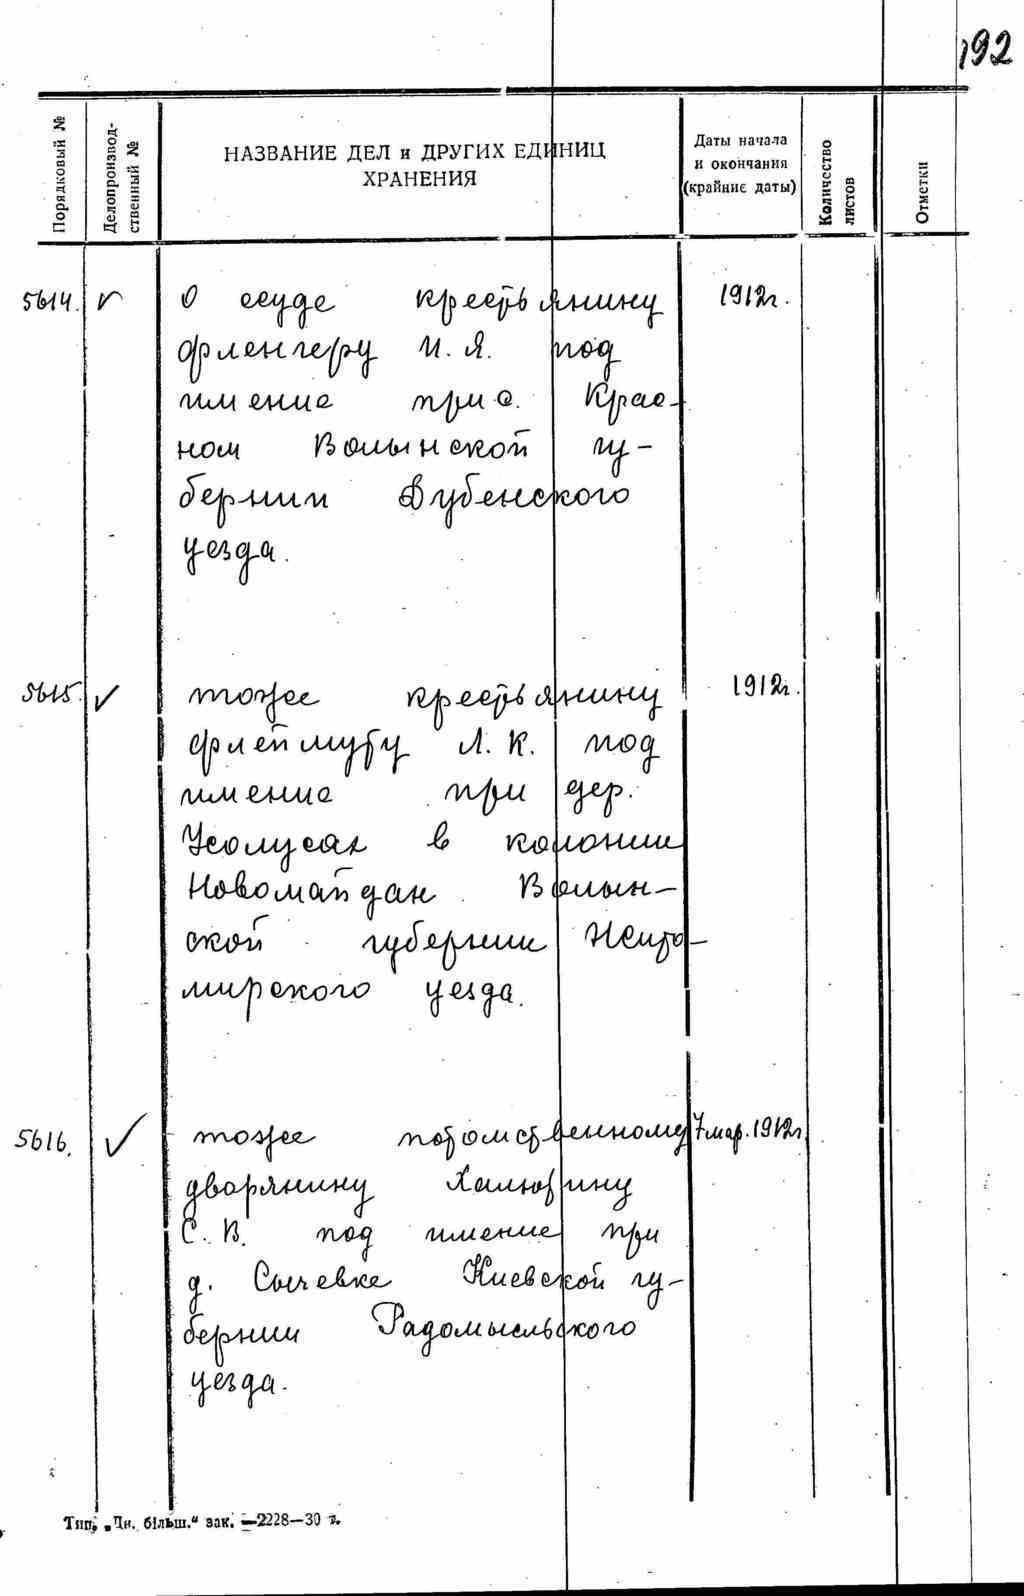 192
Порядковый №
Делопроизвод-
ственный №
НАЗВАНИЕ ДЕЛ и ДРУГИХ ЕДИНИЦ
ХРАНЕНИЯ
Даты начала
и окончания
(крайние даты)
Количество
листов
Отметки
5614. О ссуде крестьянину 1912г.
Фленгеру И. Я. под
имение при с. Крас-
ном Волынской гу-
бернии Дубенского
уезда.
5615. тоже крестьянину 1912г.
Флеймуту Л. К. под
имение при дер.
Усолусах в колонии
Новомайдан Волын-
ской губернии Жито-
мирского уезда.
5616. тоже потомственному 7 мар. 1912г.
дворянину Халютину
С. В. под имение при
д. Сычевке Киевской гу-
бернии Радомысльского
уезда.
Тип. „Чи. більш.“ зак. —2228—30 т.